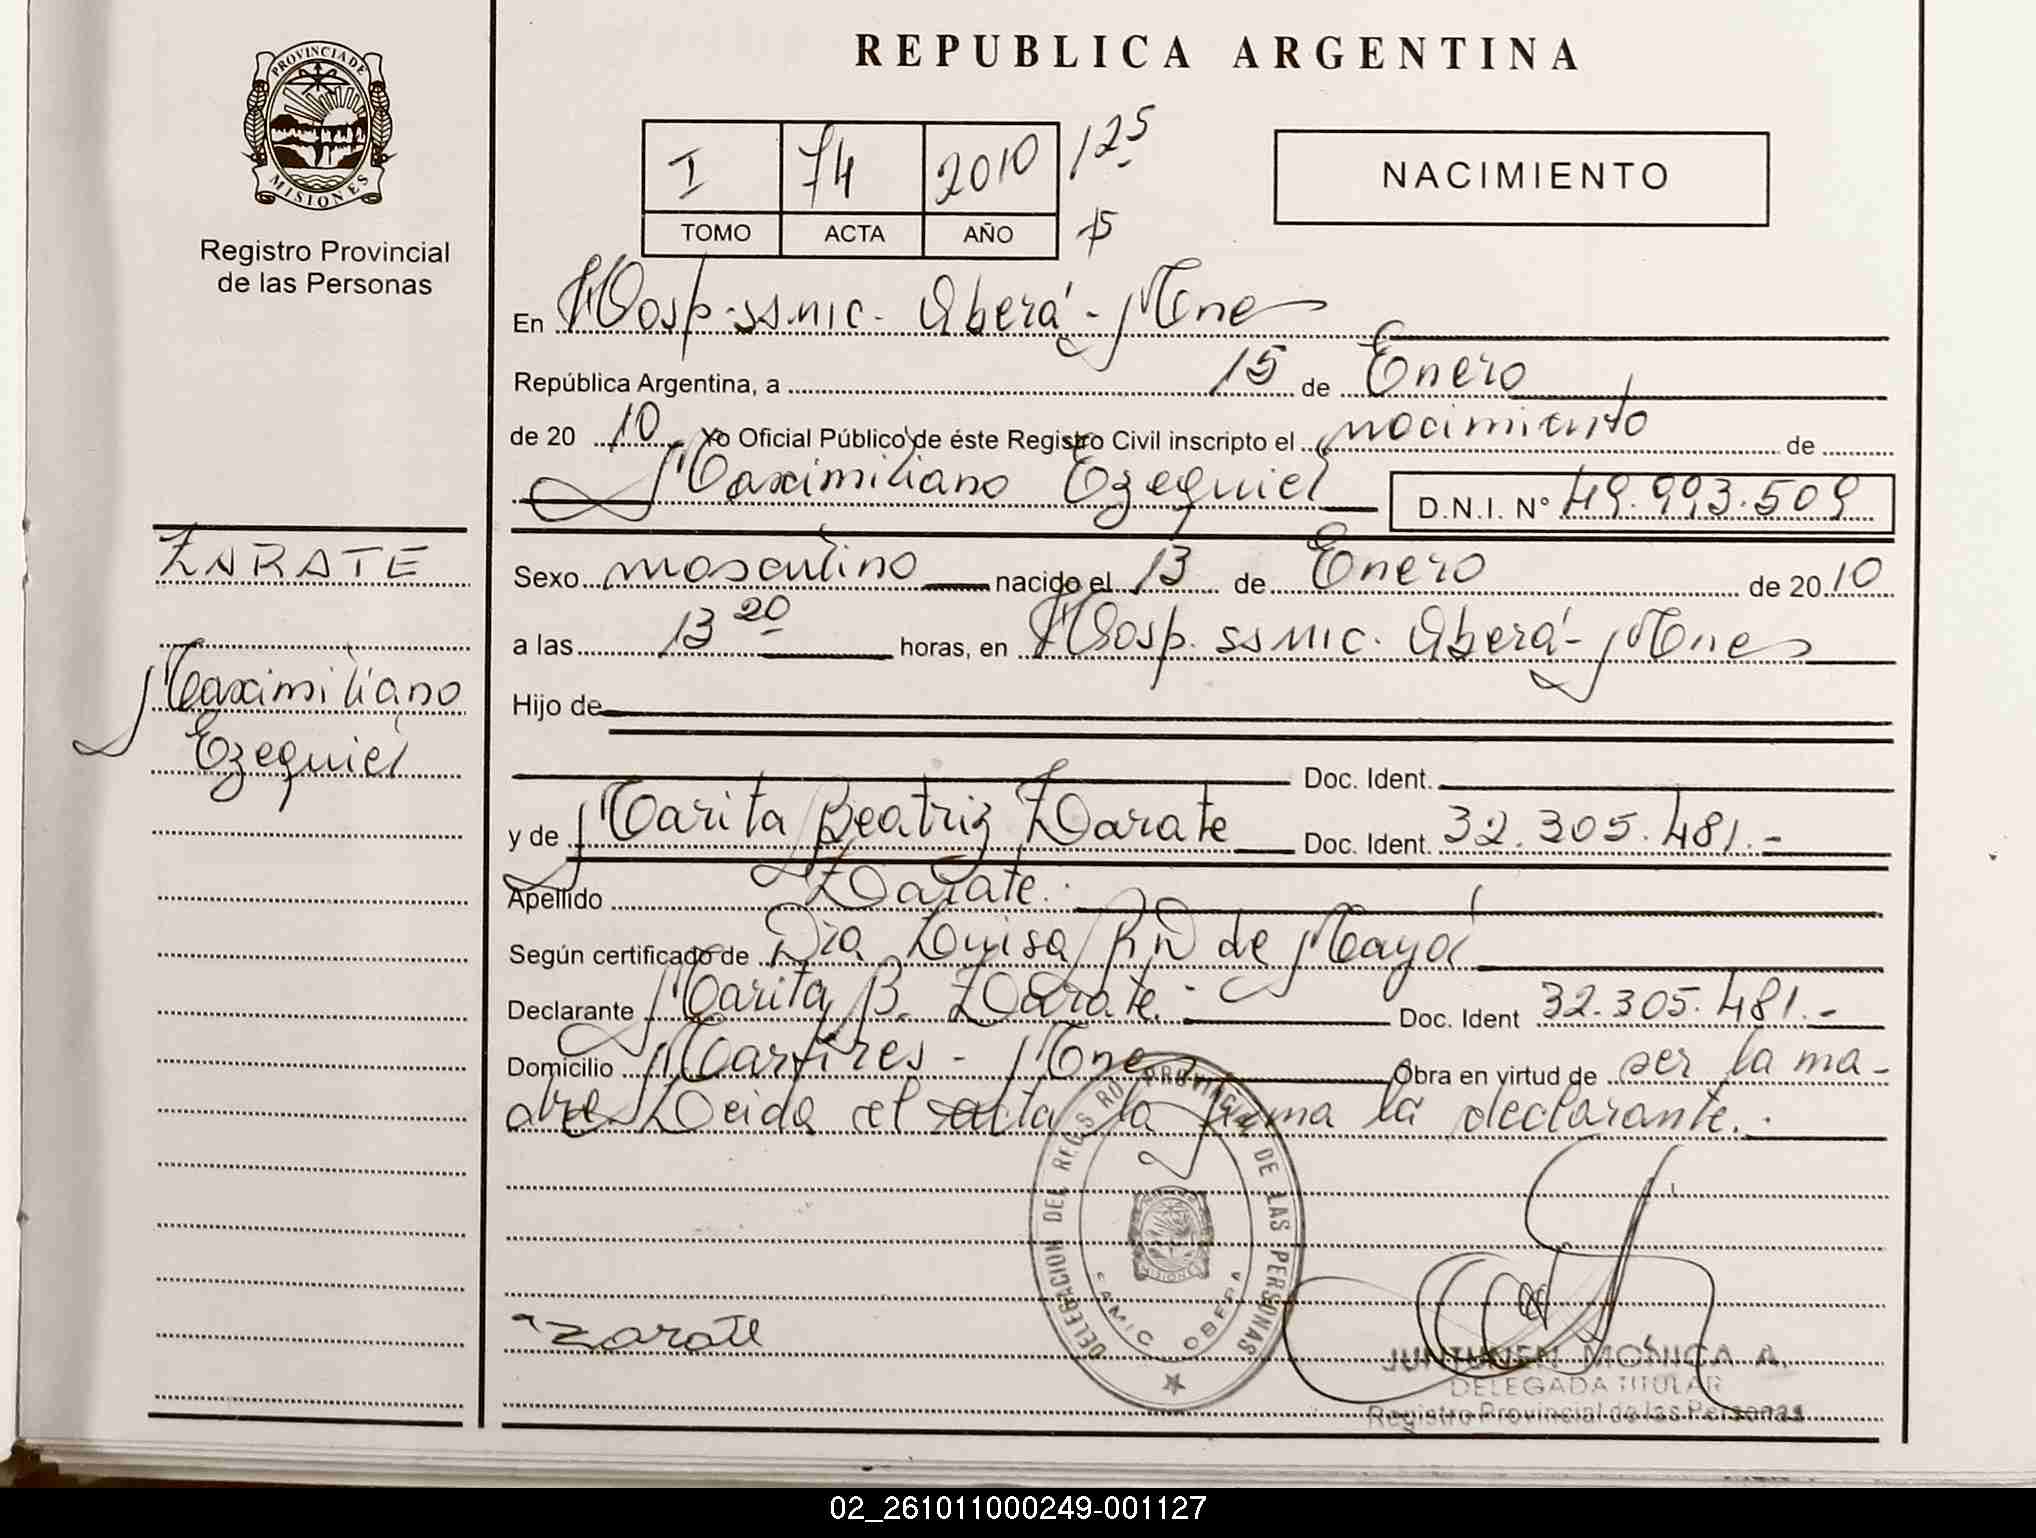 PROVINCIA DE
MISIONES
Registro Provincial
de las Personas
REPUBLICA ARGENTINA
I 74 2010 125
TOMO ACTA AÑO 15
NACIMIENTO
En Hosp. SSMIC. Oberá - Mnes
República Argentina, a 15 de Enero
de 20 10 Yo Oficial Público de éste Registro Civil inscripto el nacimiento de
Maximiliano Ezequiel D.N.I. Nº 49.993.509
ZARATE
Maximiliano
Ezequiel
Sexo masculino nacido el 13 de Enero de 20 10
a las 13 20 horas, en Hosp. SSMIC. Oberá - Mnes
Hijo de
Doc. Ident.
y de Marita Beatriz Zarate Doc. Ident. 32.305.481.-
Apellido Zarate.
Según certificado de Dra Luisa de Mayol
Declarante Marita B. Zarate. Doc. Ident 32.305.481.-
Domicilio Martires - Mnes Obra en virtud de ser la ma-
dre Leida el acta la firma la declarante.
DELEGACION DEL REGISTRO PROVINCIAL DE LAS PERSONAS
SAMIC OBERA
MISIONES
Zarate
JUNTUNEN MONICA A.
DELEGADA TITULAR
Registro Provincial de las Personas
02_261011000249-001127